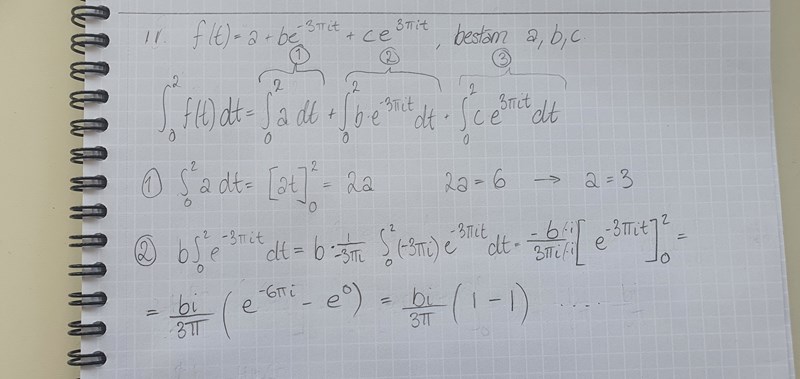 11. f(t) = a + be^{-3πit} + ce^{3πit}, bestäm a, b, c.
① ② ③
∫_0^2 f(t) dt = ∫_0^2 a dt + ∫_0^2 b·e^{-3πit} dt + ∫_0^2 c e^{3πit} dt
① ∫_0^2 a dt = [at]_0^2 = 2a 2a = 6 → a = 3
② b∫_0^2 e^{-3πit} dt = b · 1/-3πi ∫_0^2 (-3πi) e^{-3πit} dt = -b(·i)/3πi(·i) [e^{-3πit}]_0^2 =
= bi/3π (e^{-6πi} - e^0) = bi/3π (1 - 1) .....